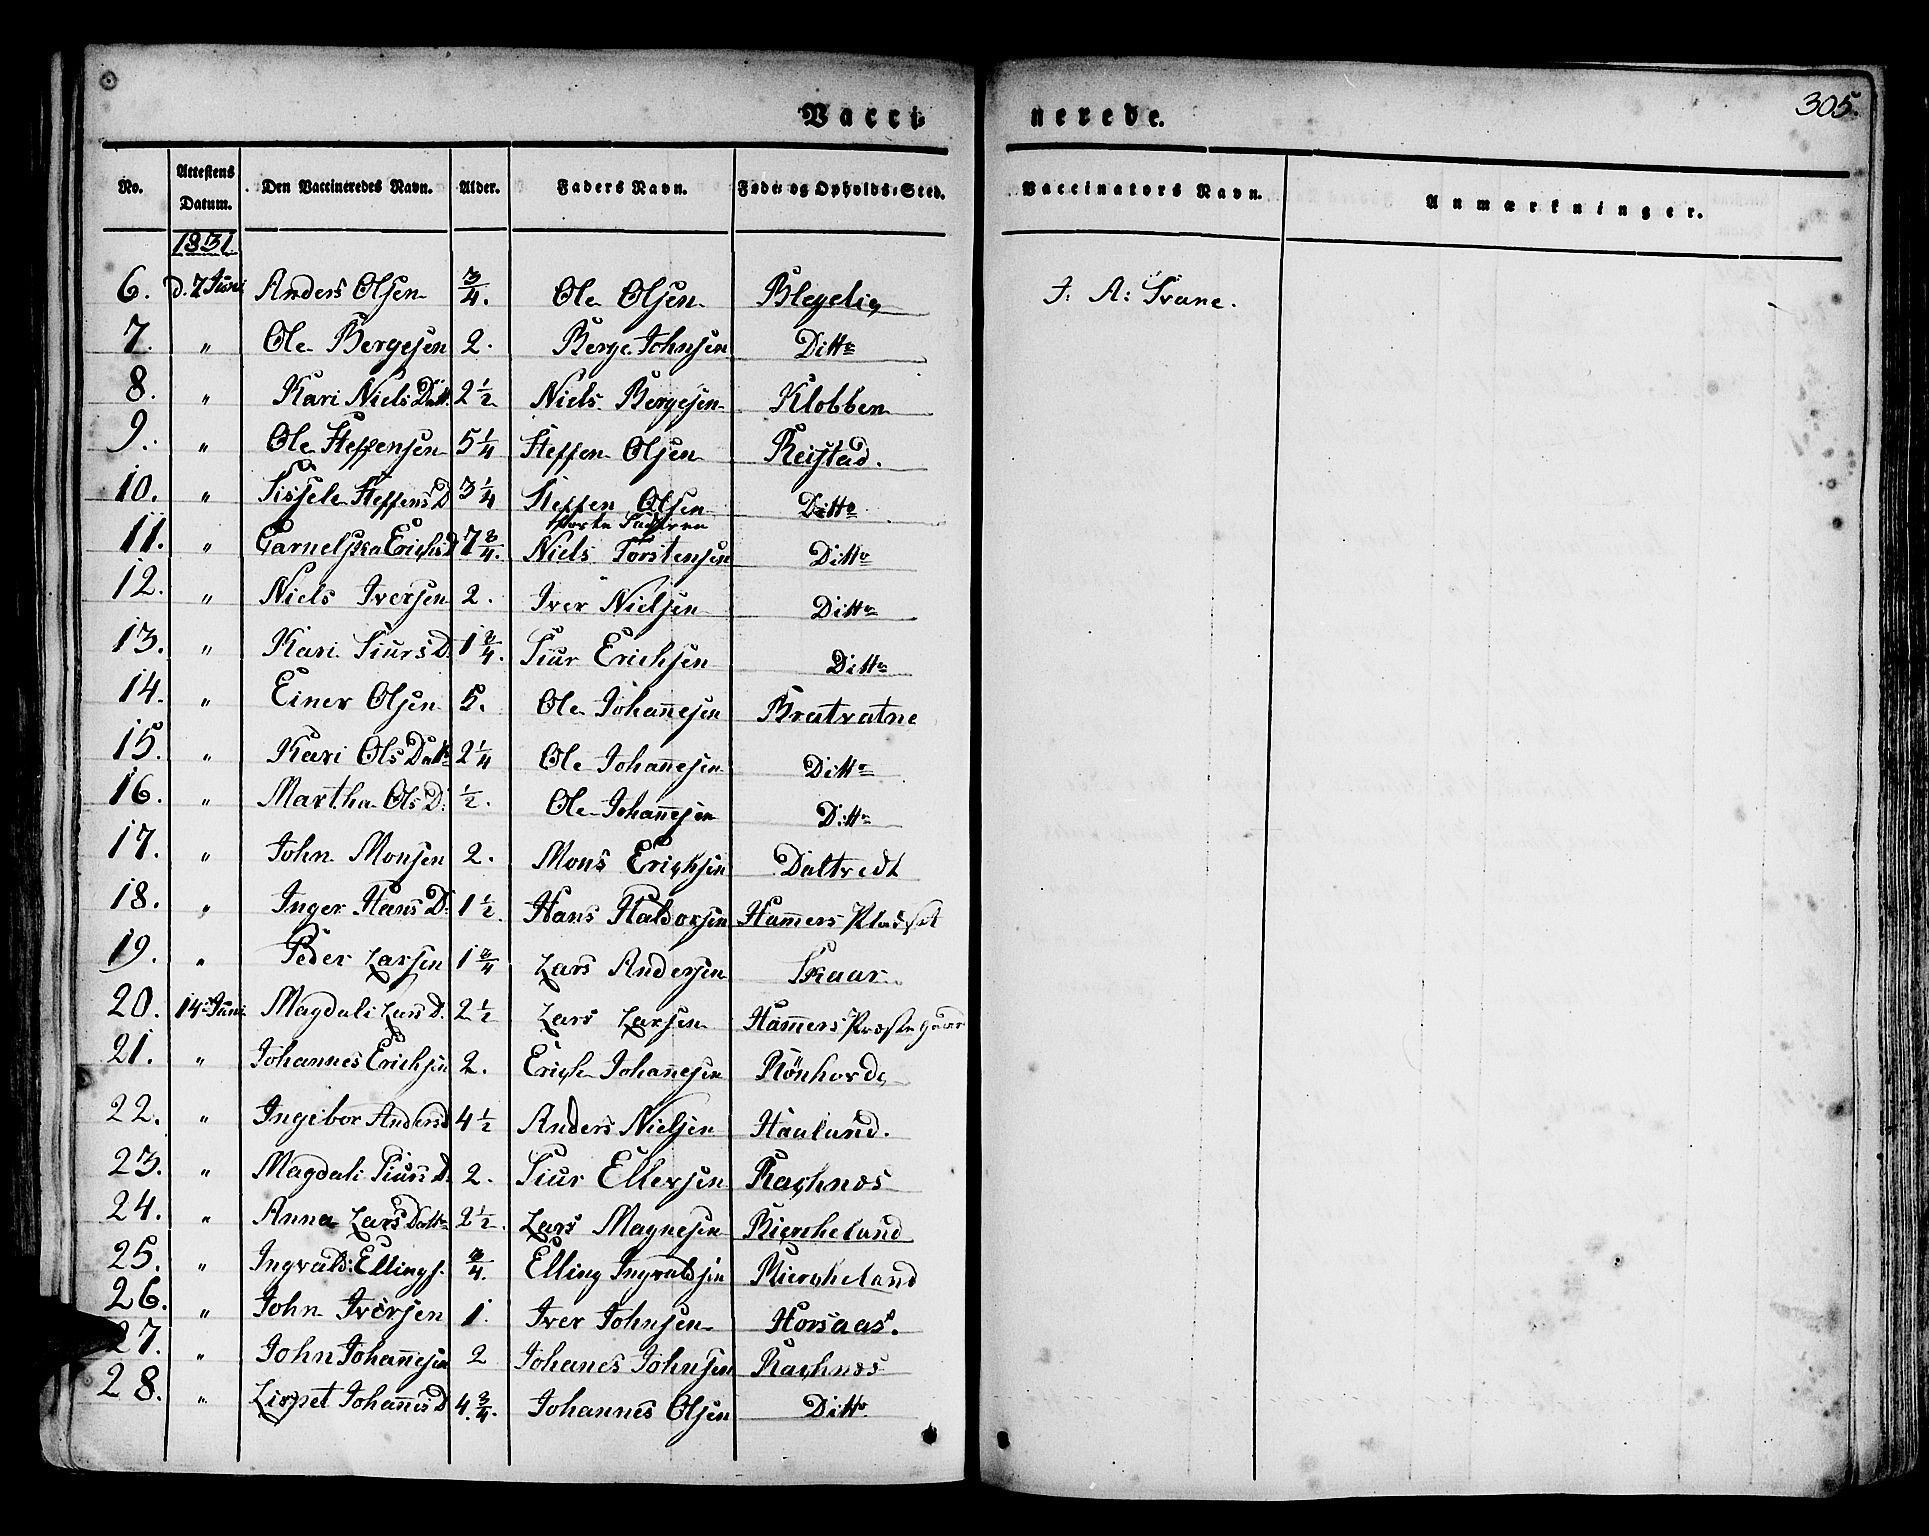 305.
Vacci nerede.
No. Attestens Datum. Den Vaccineredes Navn. Alder. Faders Navn. Føde- og Opholds-Sted. Vaccinators Navn. Anmærkninger.
1831.
6. d. 7 Juni Anders Olsen 3/4. Ole Olsen Blegelig J. A: Svane.
7. " Ole Bergesen 2. Berge Johnsen Ditto
8. " Kari Niels Datt. 2 1/2 Niels Bergesen Klobben
9. " Ole Steffensen 5 1/4 Steffen Olsen Reistad.
10. " Sissele Steffens D 3 1/4 Steffen Olsen Ditto
11. " Garnelska Erichs D 7 3/4. Niels Torstensen Ditto
12. " Niels Iversen 2. Iver Nielsen Ditto
13. " Kari Siurs D. 1 3/4. Siur Erichsen Ditto
14. " Einer Olsen 5. Ole Johañesen Bratvatne
15. " Kari Ols Datt 2 1/4 Ole Johañesen Ditto
16. " Martha Ols D: 1/2. Ole Johañesen Ditto
17. " John Monsen 2. Mons Erichsen Daltvedt
18. " Inger Hans D: 1 1/2. Hans Haldorsen Ham̃ers Pladset
19. " Peder Larsen 1 3/4 Lars Andersen Skaar
20. 14 Juni Magdali Lars D. 2 1/2 Lars Larsen Ham̃ers Præstegaar
21. " Johannes Erichsen 2. Erich Johañesen Rönhovde
22. " Ingebor Anders d 4 1/2 Anders Nielsen Haaland.
23. " Magdali Siurs D. 2. Siur Ellersen Rachnes
24. " Anna Lars Datter 2 1/2. Lars Magnesen Kircheland
25. " Ingvald: Ellings. 3/4. Elling Ingvaldsen Kircheland
26. " John Iversen 1. Iver Johnsen Horsaas.
27. " John Johañesen 2 Johanes Johnsen Rachnes
28. " Lispet Johañes D 4. 3/4. Johannes Olsen Ditto